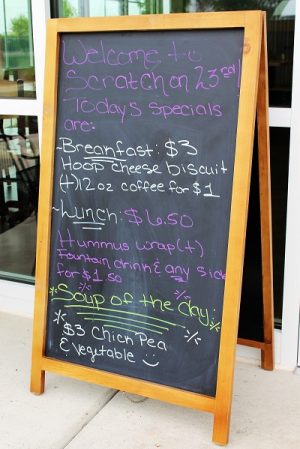 Welcome to
Scratch on 23rd!
Todays specials
are:
Breakfast: $3
Hoop cheese biscuit
(+)12oz coffee for $1
~Lunch: $6.50
Hummus wrap(+)
Fountain drink & any side
for $1.50
Soup of the day:
$3 Chick Pea
& vegetable